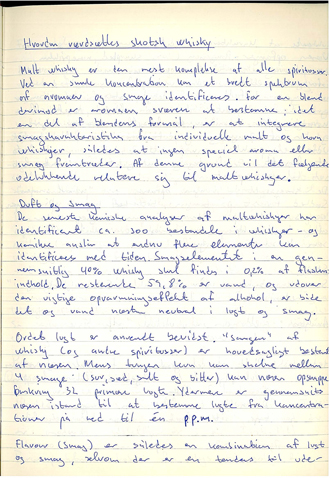 Hvordan værdsættes skotsk whisky
Malt whisky er den mest komplekse af alle spirituoser.
Ved en smule koncentration kan et bredt spektrum
af aromaer og smage identificeres. For en blend
derimod er aromaen svære at bestemme; idet
en del af blendens formål er at integrere
smagskarakteristika fra individuelle malt og korn
whiskyer, således at ingen speciel aroma eller
smag fremtræder. Af denne grund vil det følgende
udelukkende relatere sig til malt whiskyer.
Duft og smag
De seneste kemiske analyser af maltwhiskyer har
identificeret ca. 300 bestanddele i whiskyer - og
kemikere anslår at endnu flere elementer kan
identificeres med tiden. Smagselementet i en gen-
nemsnitlig 40% whisky skal findes i 0,2% af flaskens
indhold. De resterende 59,8% er vand, og udover
den vigtige opvarmningseffekt af alkohol, er både
det og vand næsten neutral i lugt og smag.
Ordet lugt er anvendt bevidst. "Smagen" af
whisky (og andre spirituosser) er hovedsagligt bestemt
af næsen. Mens tungen kun kan skelne mellem
4 smage: (sur, sød, salt og bitter) kan næsen opsnappe
omkring 32 primære lugte. Ydermere er gennemsnits
næsen istand til at bestemme lugte fra koncentra-
tioner på ned til én p.p.m.
Flavour (smag) er således en kombination af lugt
og smag, selvom der er en tendens til